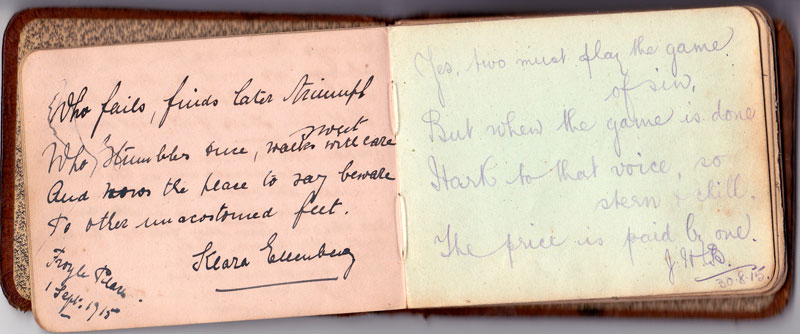 Who fails, finds later triumph
sweet
Who stumbles once, walks with care
And knows the place to say beware
To other unacostomed feet.
Klara Ellenberg
Froyle Place.
1 Sept. 1915
Yes, two must play the game
of sin,
But when the game is done
Hark to that voice, so
stern & chill.
The price is paid by one.
30-8-15.